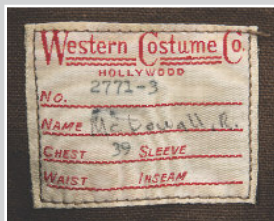 Western Costume Co.
HOLLYWOOD
No. 2771-3
NAME McDowall, R.
CHEST 39 SLEEVE
WAIST INSEAM